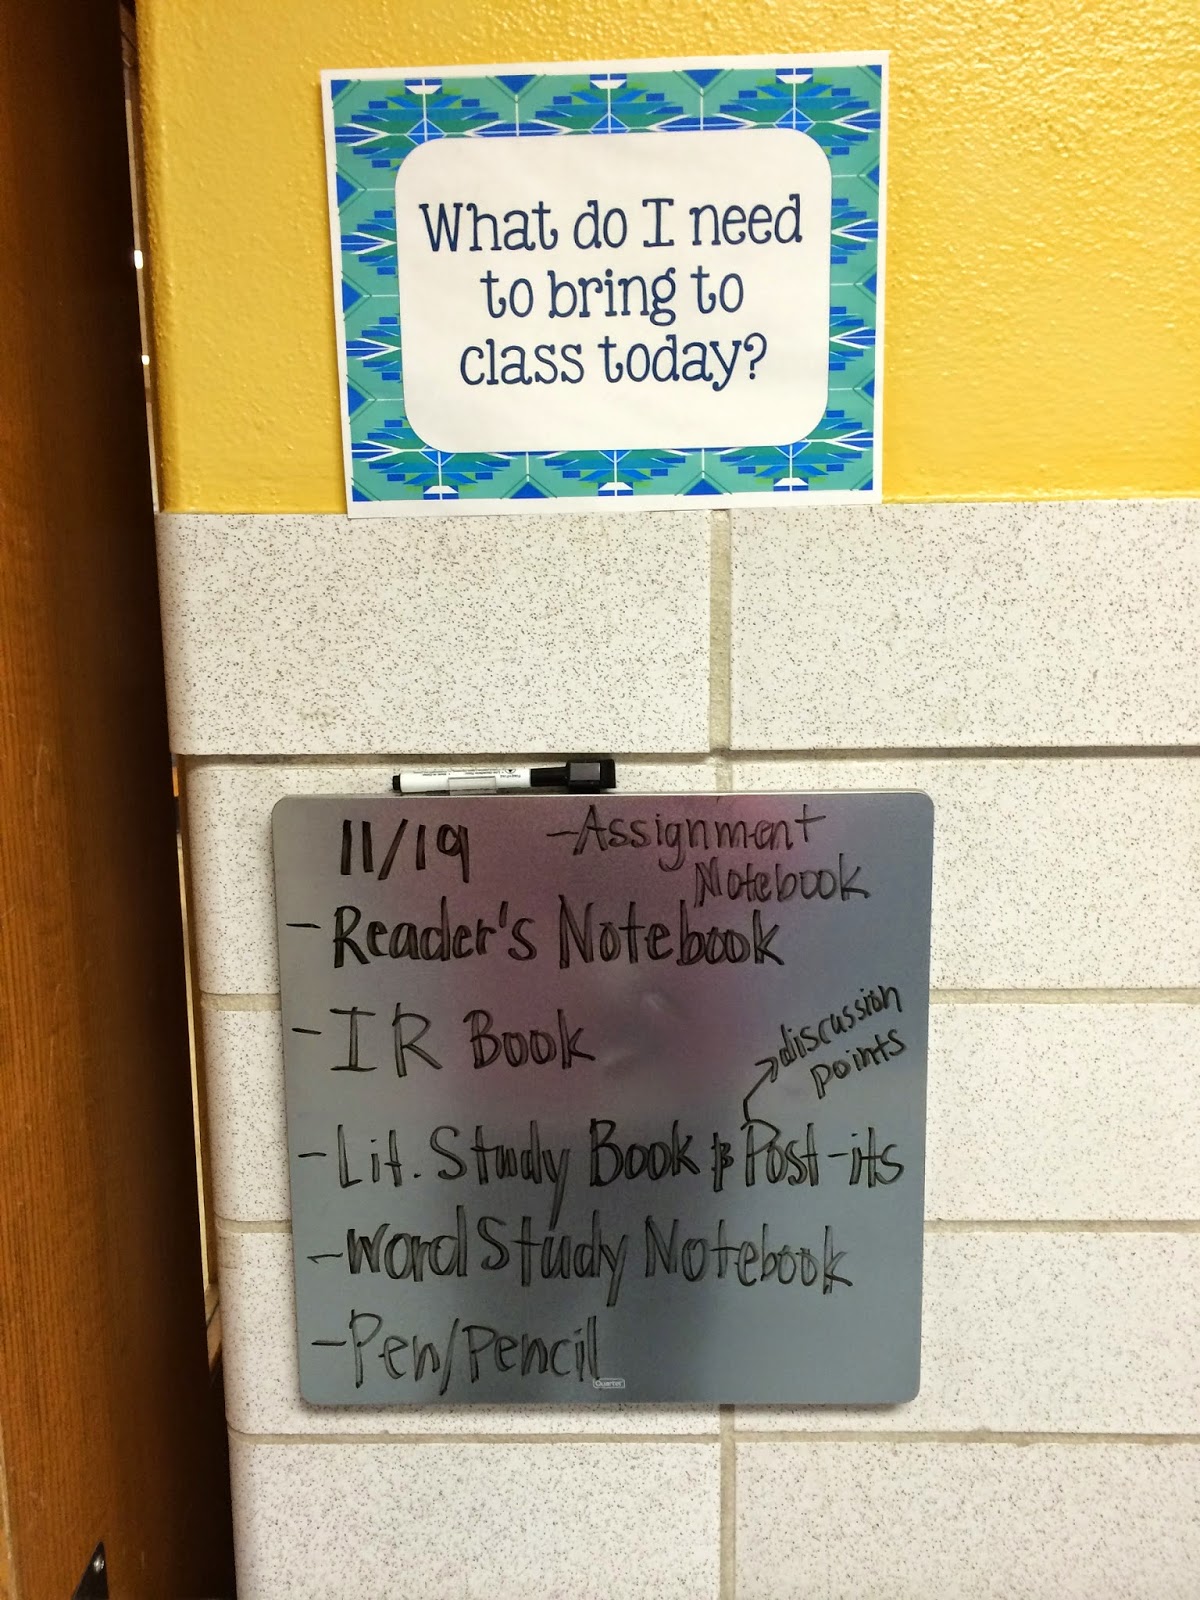 What do I need
to bring to
class today?
11/19
-Assignment
Notebook
-Reader's Notebook
-IR Book
discussion
points
-Lit. Study Book & Post-its
-Word Study Notebook
-Pen/Pencil
Quartet